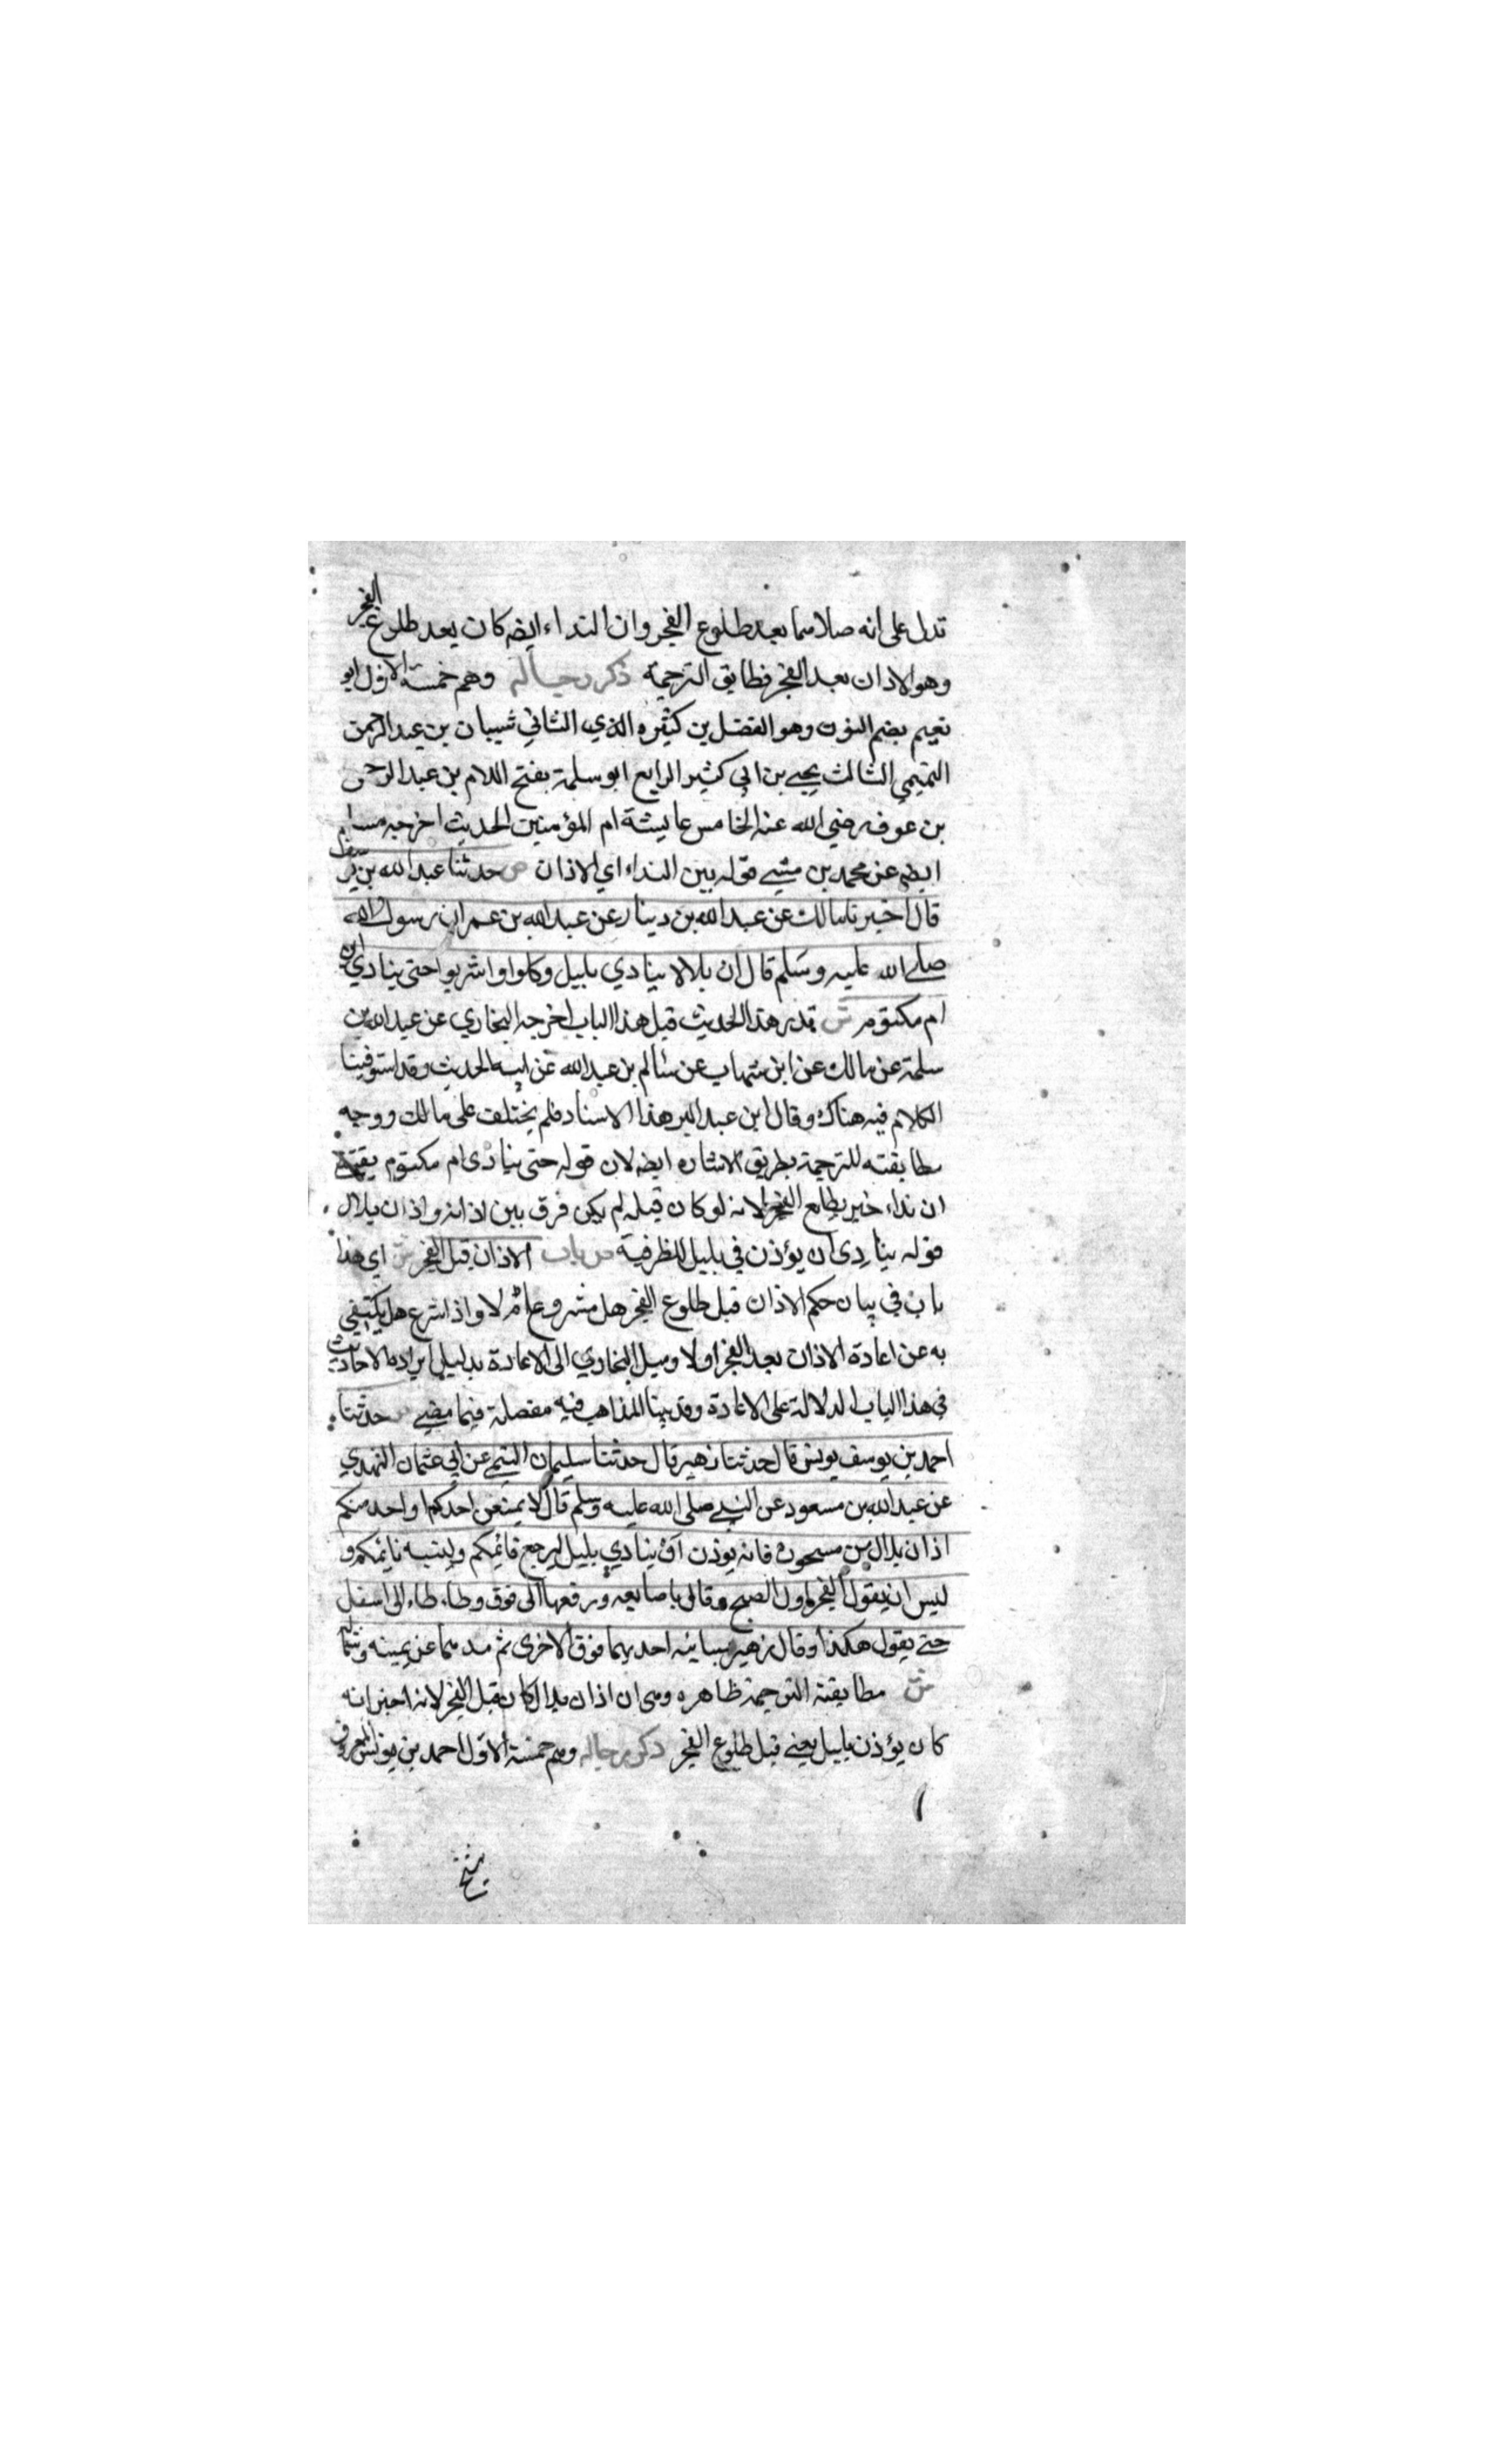 تدل على انه صلاهما بعد طلوع الفجر وان النداء ايضا كان بعد طلوع الفجر
وهو الاذان بعد الفجر فطابق الترجمة ذكر رجاله وهم خمسة الاول ابو
نعيم بضم النون وهو الفضل بن كثيره الذي الثاني شيبان بن عبد الرحمن
التميمي الثالث يحيى بن ابي كثير الرابع ابو سلمة بفتح اللام بن عبد الرحمن
بن عوف رضي الله عنه الخامس عايشة ام المؤمنين الحديث اخرجه مسلم
ايضا عن محمد بن مثنى قوله بين النداء اي الاذان ص حدثنا عبد الله بن يوسف
قال اخبرنا مالك عن عبد الله بن دينار عن عبد الله بن عمر ان رسول الله
صلى الله عليه وسلم قال ان بلالا ينادي بليل وكلوا واشربوا حتى ينادي ابن
ام مكتوم ش قد مر هذا الحديث قبل هذا الباب اخرجه البخاري عن عبد الله بن
سلمة عن مالك عن ابن شهاب عن سالم بن عبد الله عن ابيه الحديث وقد استوفينا
الكلام فيه هناك وقال ابن عبد البر هذا الاسناد فلم يختلف على مالك ووجه
مطابقته للترجمة بطريق الاشاره ايضا لان قوله حتى ينادى ام مكتوم يقتضي
ان نداء حين يطلع الفجر لانه لو كان قبله لم يكن فرق بين اذانه واذان بلال
قوله ينادى ان يؤذن في بليل للظرفية ص باب الاذان قبل الفجر ش اي هذا
باب في بيان حكم الاذان قبل طلوع الفجر هل مشروع ام لا واذا شرع هل يكتفي
به عن اعادة الاذان بعد الفجر اولا وميل البخاري الى الاعادة بدليل ايراده الاحاديث
في هذا الباب الدلالة على الاعادة وقد بينا المذاهب فيه مفصلة فيما مضى ص حدثنا
احمد بن يوسف يونس قال حدثنا زهير قال حدثنا سليمان التيمي عن ابي عثمان النهدي
عن عبد الله بن مسعود عن النبي صلى الله عليه وسلم قال لا يمنعن احدكم او احد منكم
اذان بلال من سحوره فانه يوذن او ينادي بليل ليرجع قائمكم ولينبه نايمكم و
ليس ان يقول الفجر او الصبح وقال باصابعه ورفعها الى فوق وطاء طاء الى اسفل
حتى يقول هكذا وقال زهير بسبابتيه احديهما فوق الاخرى ثم مدهما عن يمينه وشماله
ش مطابقته الترجمة ظاهره وهى ان اذان بلال كان قبل الفجر لانه اخبر انه
كان يؤذن بليل يعني قبل طلوع الفجر ذكر رجاله وهم خمسة الاول احمد بن يونس المعروف
بشيخ